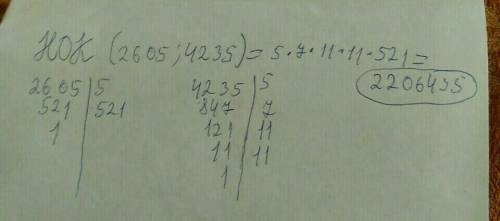 НОК (2605; 4235) = 5·7·11·11·521 =
2206435
2605 | 5
521 | 521
1
4235 | 5
847 | 7
121 | 11
11 | 11
1